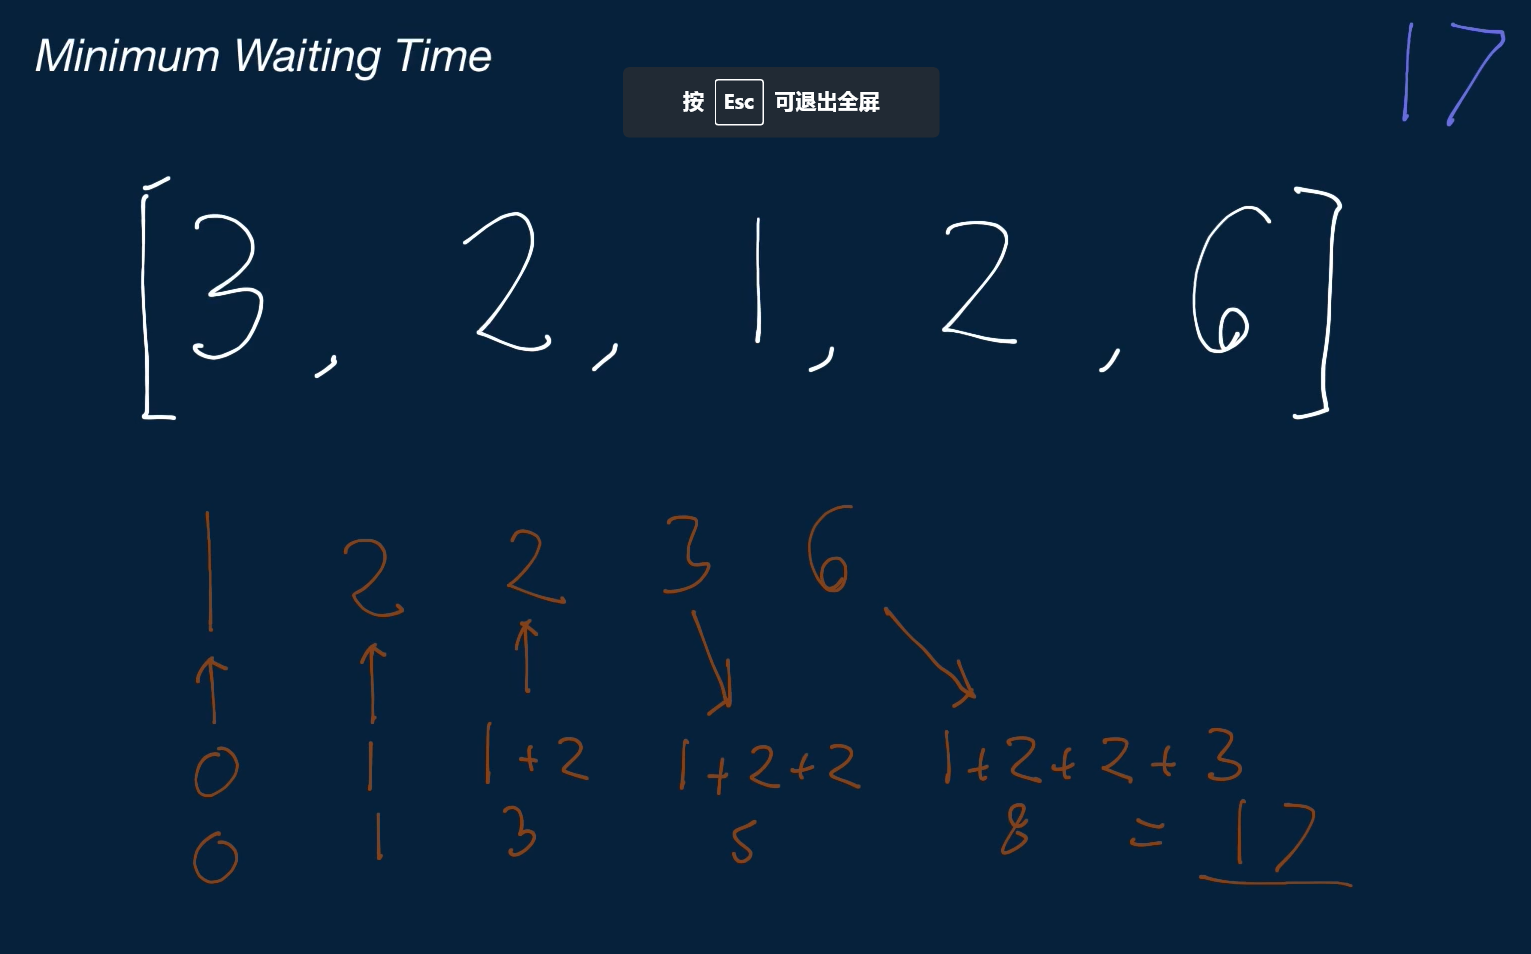 Minimum Waiting Time
17
按 Esc 可退出全屏
[3, 2, 1, 2, 6]
1 2 2 3 6
0 1 1+2 1+2+2 1+2+2+3
0 1 3 5 8 = 17